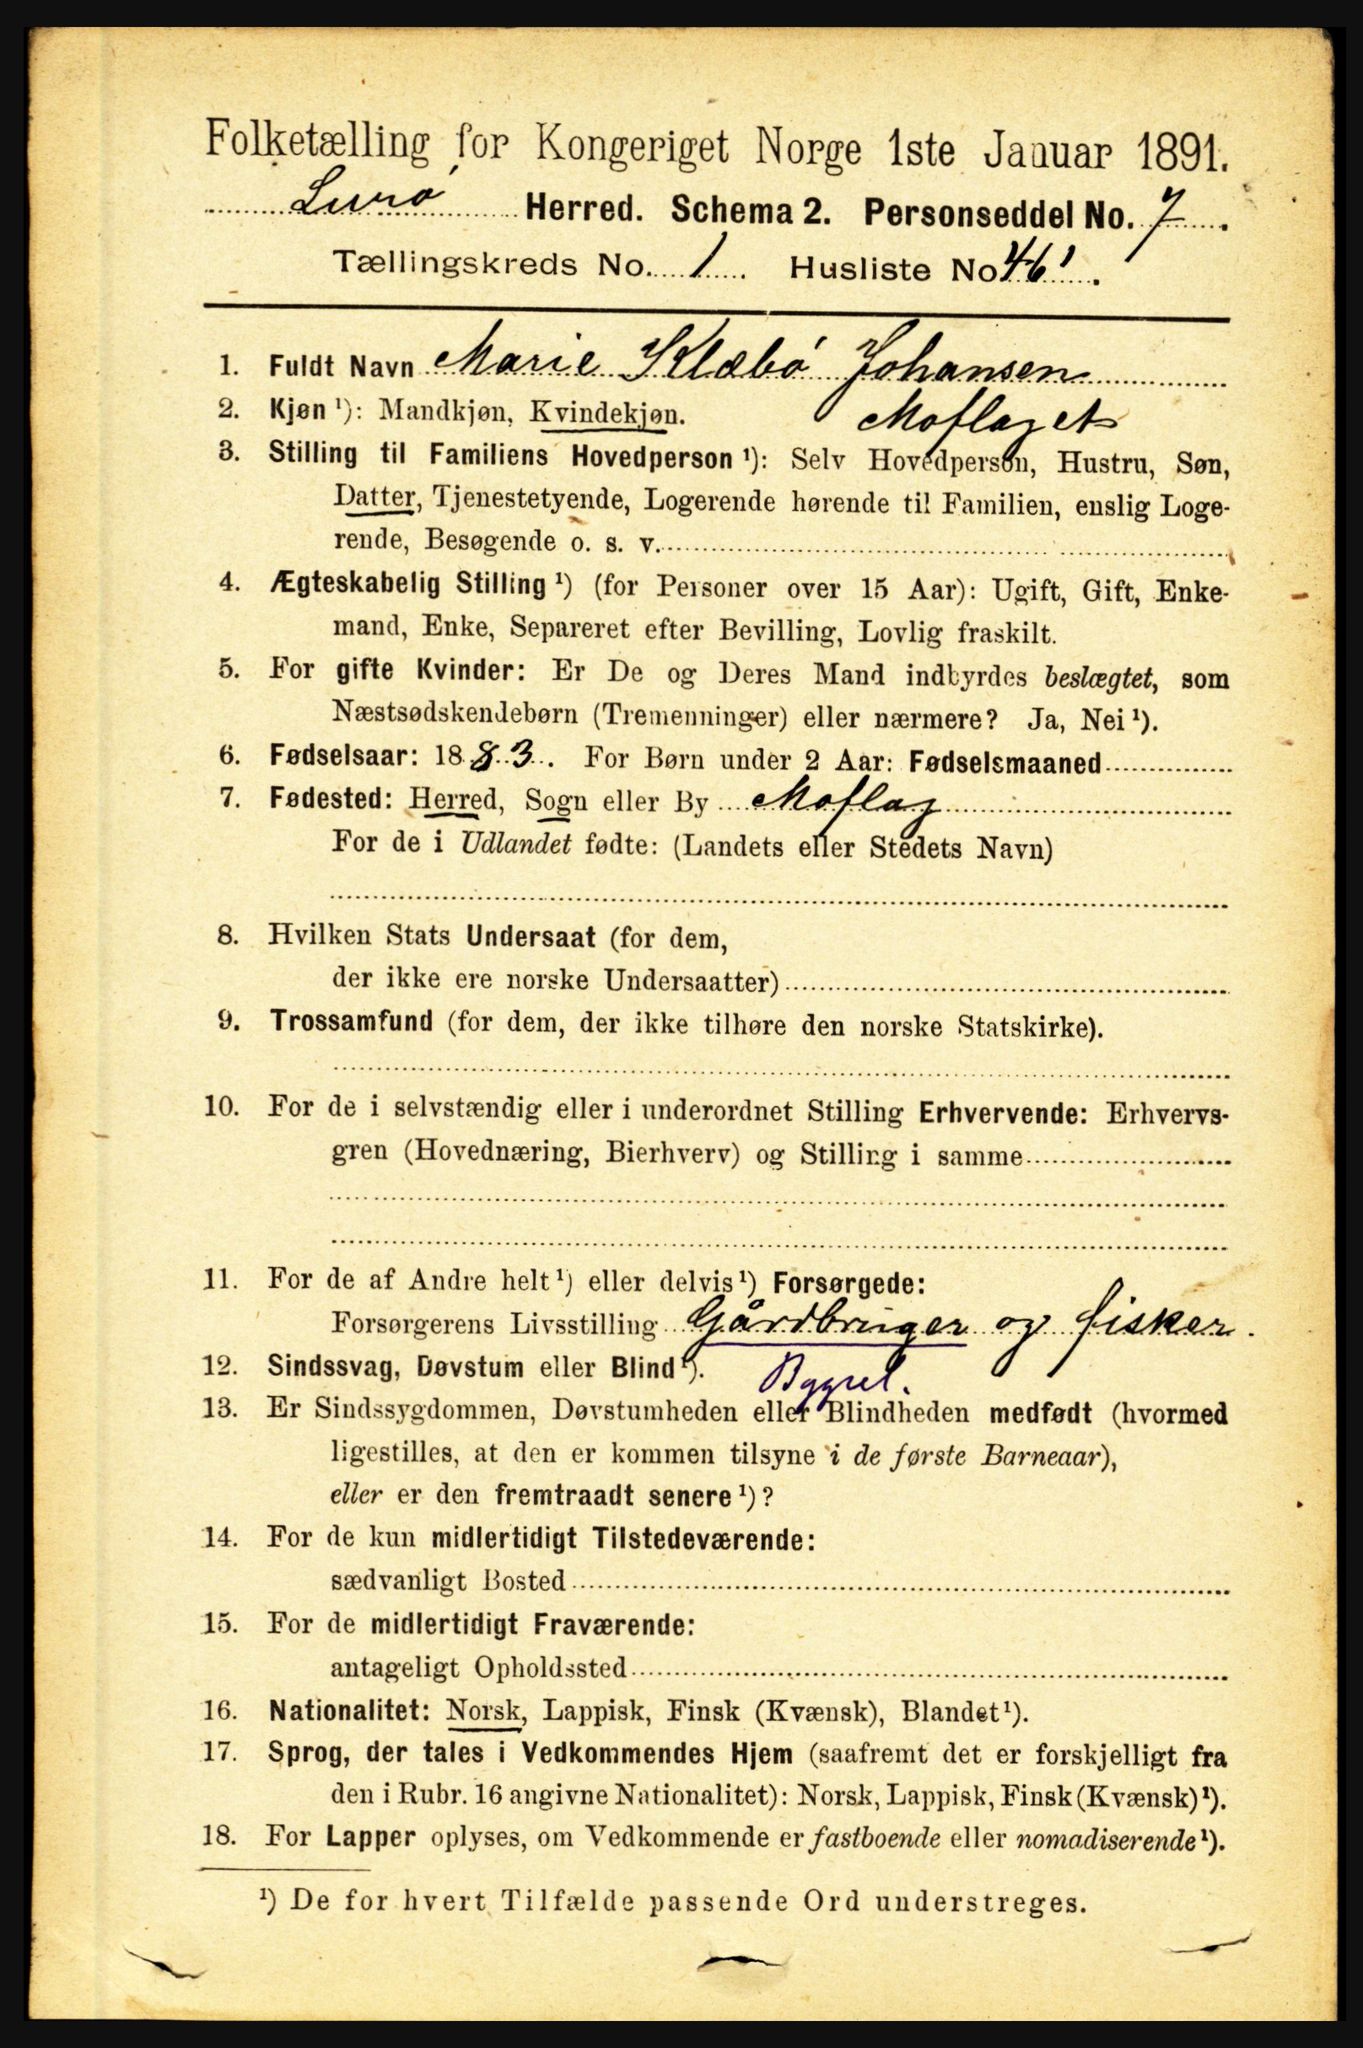 Folketælling for Kongeriget Norge 1ste Januar 1891.
Lurø Herred. Schema 2. Personseddel No. 7.
Tællingskreds No. 1. Husliste No 46.
1. Fuldt Navn Marie Klæbø Johansen
2. Kjøn ¹): Mandkjøn, Kvindekjøn. Moflaget
3. Stilling til Familiens Hovedperson ¹): Selv Hovedperson, Hustru, Søn,
Datter, Tjenestetyende, Logerende hørende til Familien, enslig Loge-
rende, Besøgende o. s. v.
4. Ægteskabelig Stilling ¹) (for Personer over 15 Aar): Ugift, Gift, Enke-
mand, Enke, Separeret efter Bevilling, Lovlig fraskilt.
5. For gifte Kvinder: Er De og Deres Mand indbyrdes beslægtet, som
Næstsødskendebørn (Tremenninger) eller nærmere? Ja, Nei ¹).
6. Fødselsaar: 1883. For Børn under 2 Aar: Fødselsmaaned
7. Fødested: Herred, Sogn eller By Moflag
For de i Udlandet fødte: (Landets eller Stedets Navn)
8. Hvilken Stats Undersaat (for dem,
der ikke ere norske Undersaatter)
9. Trossamfund (for dem, der ikke tilhøre den norske Statskirke).
10. For de i selvstændig eller i underordnet Stilling Erhvervende: Erhvervs-
gren (Hovednæring, Bierhverv) og Stilling i samme
11. For de af Andre helt ¹) eller delvis ¹) Forsørgede:
Forsørgerens Livsstilling Gårdbruger og fisker.
12. Sindssvag, Døvstum eller Blind ¹). Bygsel.
13. Er Sindssygdommen, Døvstumheden eller Blindheden medfødt (hvormed
ligestilles, at den er kommen tilsyne i de første Barneaar),
eller er den fremtraadt senere ¹)?
14. For de kun midlertidigt Tilstedeværende:
sædvanligt Bosted
15. For de midlertidigt Fraværende:
antageligt Opholdssted
16. Nationalitet: Norsk, Lappisk, Finsk (Kvænsk), Blandet ¹).
17. Sprog, der tales i Vedkommendes Hjem (saafremt det er forskjelligt fra
den i Rubr. 16 angivne Nationalitet): Norsk, Lappisk, Finsk (Kvænsk) ¹).
18. For Lapper oplyses, om Vedkommende er fastboende eller nomadiserende ¹).
¹) De for hvert Tilfælde passende Ord understreges.